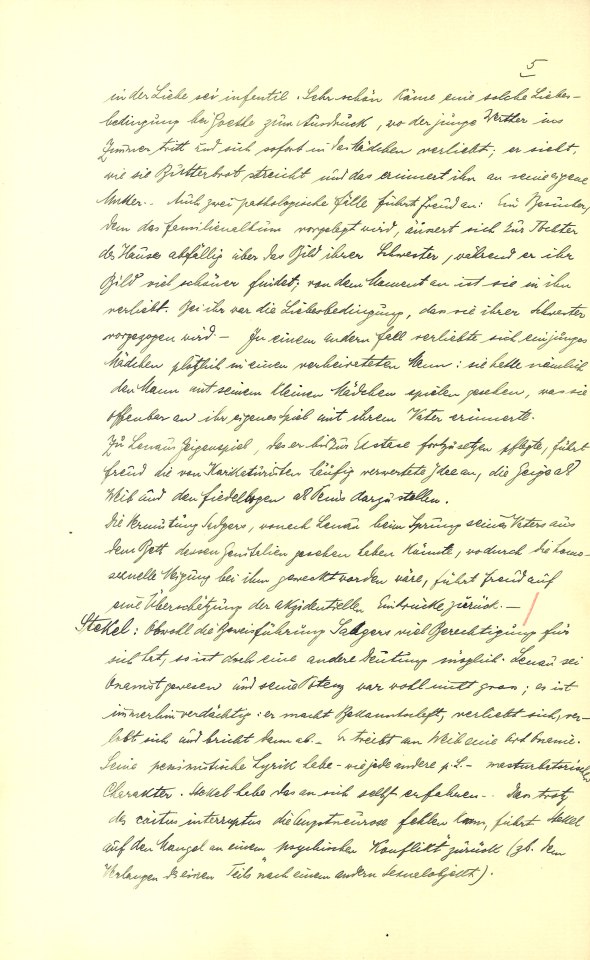 5
in der Liebe sei infantil. Sehr schön käme eine solche Liebes-
bedingung bei Goethe zum Ausdruck, wo der junge Werther ins
Zimmer tritt und sich sofort in das Mädchen verliebt; er sieht,
wie sie Butterbrot streicht und das erinnert ihn an seine eigene
Mutter. Auch zwei pathologische Fälle führt Freud an: Ein Besucher,
dem das Familienalbum vorgelegt wird, äussert sich zur Tochter
des Hauses abfällig über das Bild ihrer Schwester, während er ihr
Bild viel schöner findet; von dem Moment an ist sie in ihn
verliebt. Bei ihr war die Liebesbedingung, dass sie ihrer Schwester
vorgezogen wird. – In einem andern Fall verliebte sich ein junges
Mädchen plötzlich in einen verheirateten Mann: sie hatte nämlich
den Mann mit seinem kleinen Mädchen spielen gesehen, was sie
offenbar an ihr eigenes Spiel mit ihrem Vater erinnerte.
Zu Lenaus Geigenspiel, das er bis zur Extase fortzusetzen pflegte, führt
Freud die von Karikaturisten häufig verwertete Idee an, die Geige als
Weib und den Fiedelbogen als Penis darzustellen.
Die Vermutung Sadgers, wonach Lenau beim Sprung seines Vaters aus
dem Bett dessen Genitalien gesehen haben könnte, wodurch die homo-
sexuelle Neigung bei ihm geweckt worden wäre, führt Freud auf
eine Überschätzung der akzidentellen Eindrücke zurück. –
Stekel: Obwohl die Beweisführung Sadgers viel Berechtigung für
sich hat, so ist doch eine andere Deutung möglich. Lenau sei
Onanist gewesen und seine Potenz war wohl nicht gross; es ist
immerhin verdächtig: er macht Bekanntschaft, verliebt sich, ver-
lobt sich und bricht dann ab. – Er treibt am Weib eine Art Onanie.
Seine pessimistische Lyrik habe – wie jede andere p. L. – masturbatorischen
Charakter. Stekel habe das an sich selbst erfahren. – Dass trotz
des coitus interruptus die Angstneurose fehlen kann, führt Stekel
auf den Mangel an einem „psychischen Konflikt“ zurück (zb. dem
Verlangen des einen Teils nach einem andern Sexualobjekt).